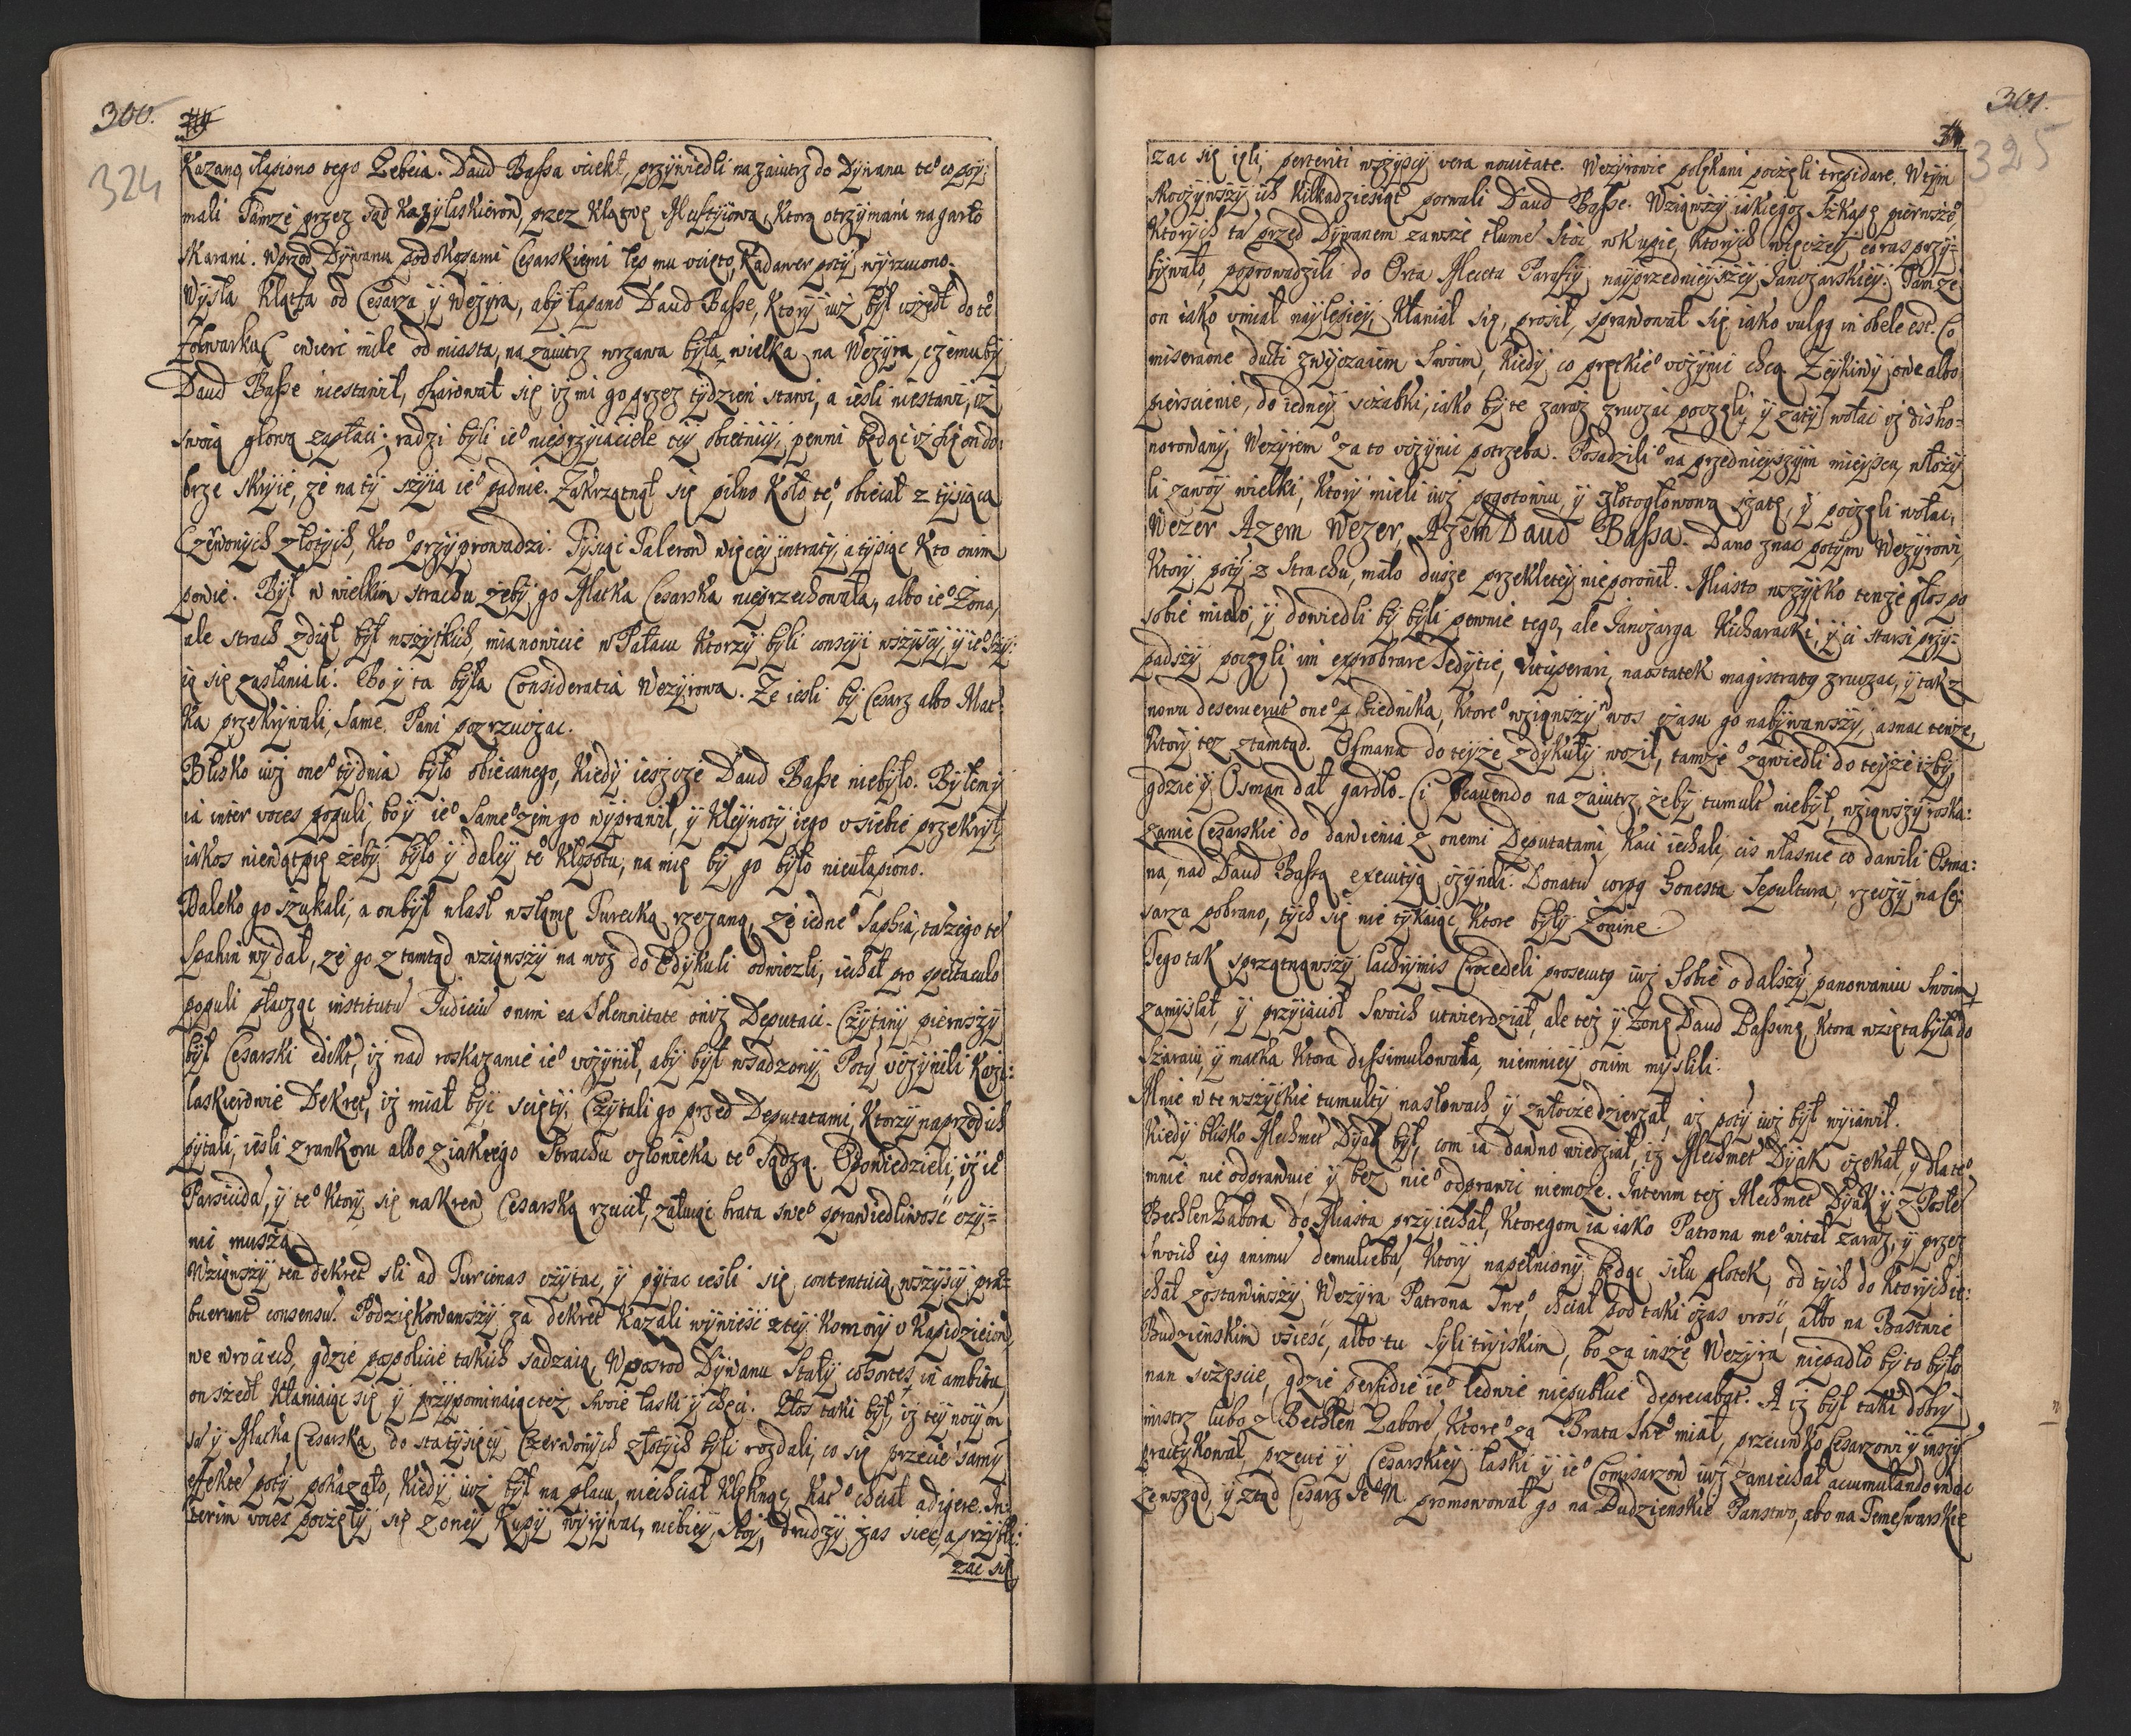 300.
324
Kazano, złapiono tego Zebeia. Daud Bassa uciekł, przywiedli na zaiutrz do Dywanu te° co poy-
mali Tamże przez sąd Kazylaskierow, przez Klątwę Muftyiową, Ktorą otrzymani na garło
skarani. Wprzod Dywanu pod okopami Cesarskiemi łep mu ucięto, Kadawer poty wyrzucono.
Wyszła Klątfa od Cesarza y Wezyra, aby łapano Daud Basse, Ktory iuż był uszedł do te°
Folwarku cwierc mile od miasta, na zaiutrz wrzawa była wielka na Wezyra, czemu by
Daud Basse niestawił, ofiarował się iż mi go przez tydzien stawi, a iesli niestawi, iż
swoią głową zapłaci; radzi byli ie° nieprzyiaciele tey obietnicy, pewni będąc iż się on do-
brze skryie, że na ty szyia ie° padnie. Zakrzątnął się pilno koło te°, obiecał z tysiąca
Czerwonych złotych, kto ° przyprowadzi. Tysiąc Talerow więcey intraty, a tysiąc kto onim
powie. Był w wielkim strachu żeby go Matka Cesarska nieprzechowała, albo ie° Żona,
ale strach zdiął był wszytkich, mianowicie w Pałacu Ktorzy byli conscyi wszyscy, y ie° szy-
ią się zasłaniali. Bo y ta była Consideratia Wezyrowa. Ze iesli by Cesarz albo Mat-
ka przekrywali, same Pani pozrzucac.
Blisko iuż one° tydnia było obiecanego, kiedy ieszcze Daud Basse niebyło. Byłem y
ia inter voces populi, bo y ie° same° zim go wyprawił, y kleynoty iego u siebie przekrył,
iakos niewątpię żeby było y daley te° kłopotu, na mię by go było nieułapiono.
Daleko go szukali, a on był wlasł w słomę Turecką rzezaną, że iedne° Saphia, tażego te°
Spahin wydał, że go z tamtąd wziąwszy na woz do Edykuli odwiezli, iechał pro spectaculo
populi płacząc institutu Judiciu onim ea Solennitate oniż Deputaci. Czytany pierwszy
był Cesarski edikt, iż nad roskazanie ie° uczynił, aby był wsadzony. Poty uczynili Kazi-
laskierowie Dekret, iż miał byc scięty. Czytali go przed Deputatami, Ktorzy naprzod ich
pytali, iesli z rankoru albo z iakiego strachu człowieka te° sądzą. Opowiedzieli, iż ie°
Parsicida, y te° Ktory się na krew Cesarską rzucił, załuiąc brata swe° sprawiedliwosc czy-
nic muszą.
Wziąwszy ten dekret sli ad Turcinas czytac, y pytac iesli się contentuią wszyscy, prae-
buerunt consensu. Podziękowawszy za dekret kazali wyniesc z tey komory u Kapidzieiow,
we wrociech, gdzie pospolicie takich sadzaią, Wposrod Dywanu Stały cohortes in ambitu,
on szedł kłaniaiąc się y przypominaiąc też swoie łaski y chęci. Głos taki był, iż tey nocy on
sa y Matka Cesarska do sta tysięcy Czerwonych złotych byli rozdali, co się przecie samy
effekte poty pokazało, kiedy iuż był na placu, niechciał klęknąc, kat ° chciał adigere. In-
terim voces poczęły się z oney kupy wyrywac, niebiey, stoy, drudzy zas siec, a przybli-
zac się

301.
325
zac się ięli, perteriti wszyscy vera novitate. Wezyrowie polękani poczęli trepidare. Wtym
skoczywszy ich kilkadziesiąt porwali Daud Basse. Wziąwszy iakiegoz Szkapę pierwsze°
Ktorych ta przed Dywanem zawsze tłume Stoi, w kupie, ktorych więczey coras przy-
bywało, poprowadzili do Orta Meceta Parafiy nayprzednieyszey Janczarskiey. Tamże
on iako umiał naylepiey, kłaniał się, prosił, sprawował się iako vulgg in obele est. Co
miseraone ducti zwyczaiem swoim, kiedy co prętkie° uczynic chcą. Zeykiny one albo
pierscienie, do iedney sczabki, iako by te zaraz zrucac poczęli, y zaty wołac iż disho-
norowany, Wezyrem ° za to uczynic potrzeba. Posadzili ° na przednieyszym mieyscu, włozy
li zawoy wielki, Ktory mieli iuż pogotowiu, y złotogłowową szatę, y poczęli wołac,
Wezer Azem Wezer, Azem Daud Bassa. Dano znac potym Wezyrowi,
Ktory poty z strachu, mało dusze przekletey nieporonił. Miasto wszytko tenże głos po
sobie miało, y dowiedli by byli pewnie tego, ale Janczarga Kicharacki, y ci starsi przy-
padszy poczęli im exprobrare Seditie, vituperari, naostatek magistratg zrucac, y tak z
nowu deseruerut one° biednika, ktore° wziąwszy w wos czasu go nabywawszy, asnac tenże,
Ktory tez ztamtąd Osmana do teyże Edykuły woził, tamże ° zawiedli do teyże izby
gdzie y Osman dał gardło. Ci Cavendo na zaiutrz, żeby tumult niebył, wziąwszy roska-
zanie Cesarskie do dawienia z onemi Deputatami, Kaci iechali, cis własnie co dawili Osma-
na, nad Daud Bassą executyą czynili. Donatu corpg honesta Sepultura, rzeczy na Ce-
sarza pobrano, tych się nie tykaiąc ktore były Zonine.
Tego tak sprzątnąwszy lachrymis Crocedeli prosecutg iuż sobie o dalszy panowaniu swoim
zamyslał, y przyiacioł swoich utwierdział, ale też y żonę Daud Bassinę, ktora wzięta była do
Szaraiu, y matka ktora dissimulowała, niemniey onim myslili.
Mnie w te wszytkie tumulty na słowach y zwłocze dzierzał, aż poty iuż był wyiawił.
Kiedy blisko Mechmet Dyak był, com ia dawno wiedział, iz Mechmet Dyak czekał, y dla te°
mnie nie odprawuie y bez nie° odprawic niemoze. Interim tez Mechmet Dyak y z Posłe
Bechlen Gabora do Miasta przyiechał, ktoregom ia iako Patrona me° witał zaraz, y przez
swoich eig animu demulceba, Ktory napełniony będąc siłu plotek, od tych do ktorych ie-
chał zostawiwszy Wezyra Patrona Swe°, chciał pod taki czas urosc, albo na Bastwie
Budzienskim usiesc, albo tu Sylitryiskim, bo za insze° Wezyra niepadło by to było
nan sczęscie, gdzie perfidie ie° ledwie niepublice deprecabat. A iż był taki dobry
mistrz lubo z Bethlen Gabore, ktore° za Brata Swe° miał, przeciwko Cesarzowi y inszy
practykował, przecie y Cesarskiey łaski y ie° Comisarzow iuż zaniechał accumulando wziac
zewsząd, y ztąd Cesarz Je° M. promowował go na Budzienskie Panstwo, abo na Temeswarskie